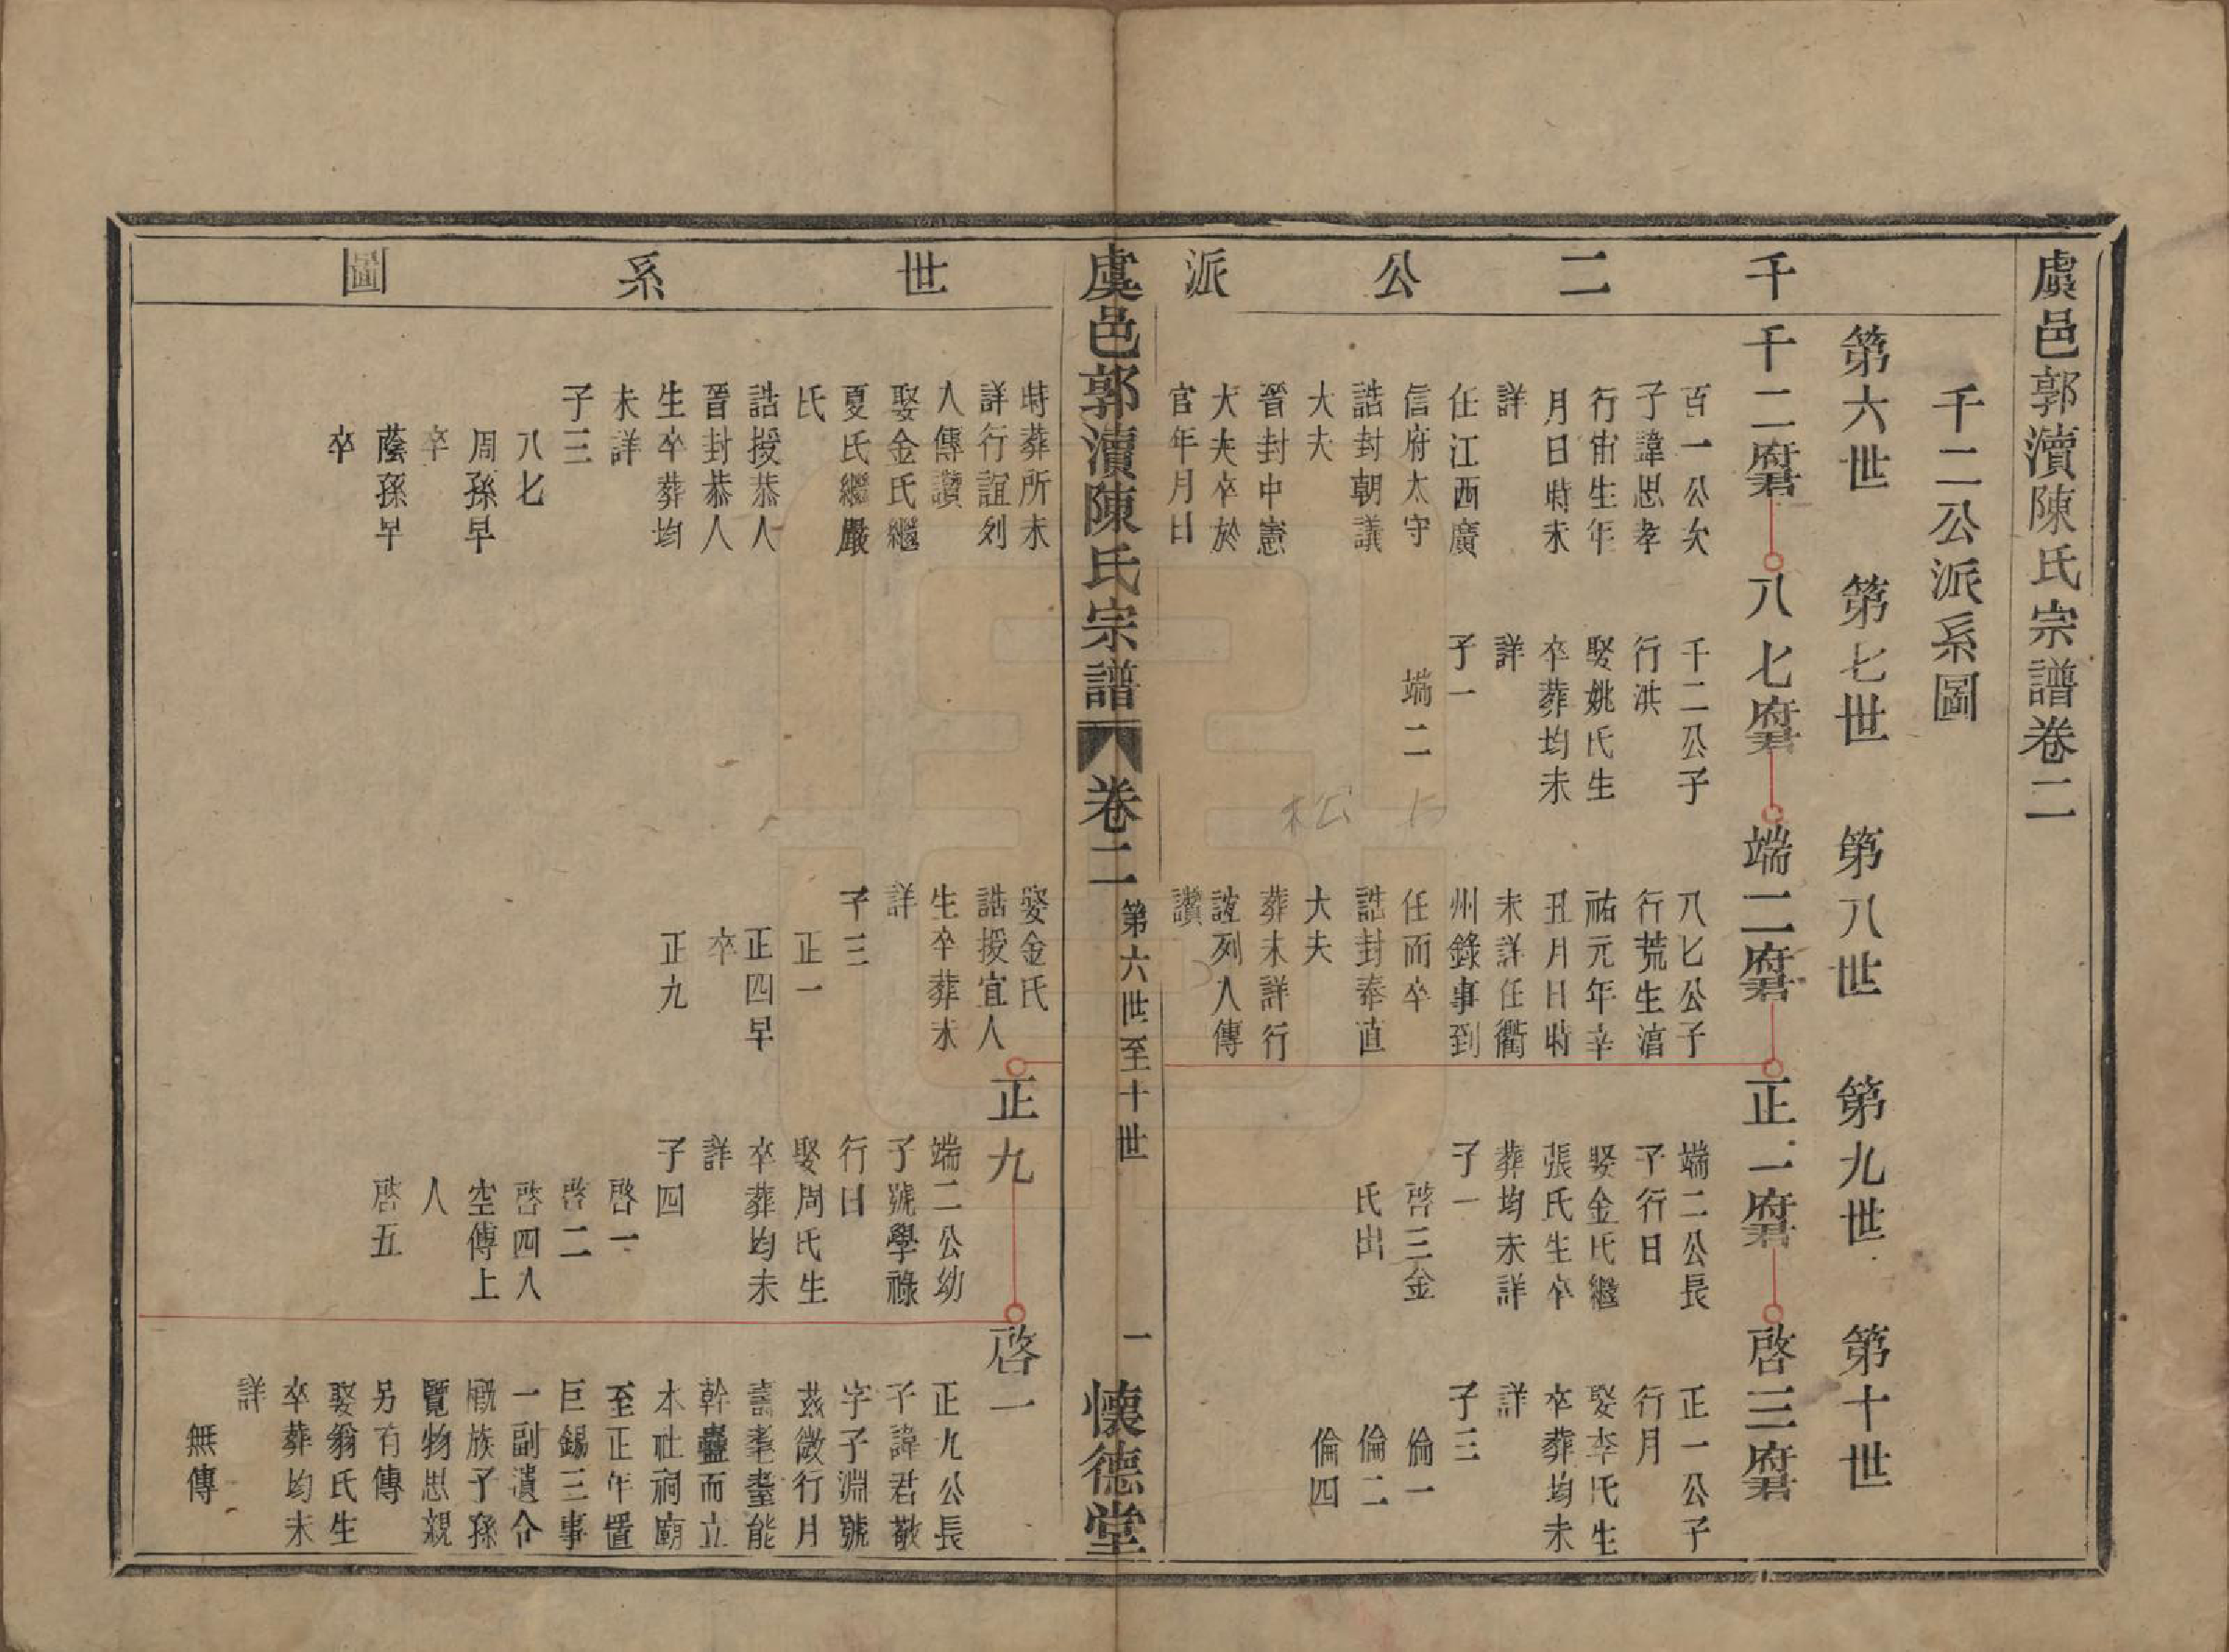 虞邑郭瀆陳氏宗譜卷二
千二公派系圖
千二公派
第六世
第七世
第八世
第九世
第十世
千二府君
百一公次
子諱思孝
行宙生年
月日時未
詳
任江西廣
信府太守
誥封朝議
大夫
晉封中憲
大夫卒於
官年月日
八七府君
千二公子
行洪
娶姚氏生
卒葬均未
詳
子一
端二
端二府君
八七公子
行荒生淳
祐元年辛
丑月日時
未詳任衢
州錄事到
任而卒
誥封奉直
大夫
葬未詳行
誼列人傳
讚
正一府君
端二公長
子行日
娶金氏繼
張氏生卒
葬均未詳
子一
啓三金
氏出
啓三府君
正一公子
行月
娶李氏生
卒葬均未
詳
子三
倫一
倫二
倫四
松
虞邑郭瀆陳氏宗譜
卷二
第六世至十世
一
懷德堂
世系圖
時葬所未
詳行誼列
人傳讚
娶金氏繼
夏氏繼嚴
氏
誥授恭人
晉封恭人
生卒葬均
未詳
子三
八七
周孫早
卒
蔭孫早
卒
娶金氏
誥授宜人
生卒葬未
詳
子三
正一
正四早
卒
正九
正九
端二公幼
子號學祿
行日
娶周氏生
卒葬均未
詳
子四
啓一
啓二
啓四人
空傳上
人
啓五
啓一
正九公長
子諱君敬
字子淵號
茲微行月
壽耄耋能
幹蠱而立
本社祠廟
至正年置
巨錫三事
一副遺令
厥族子孫
覽物思親
另有傳
娶翁氏生
卒葬均未
詳
無傳